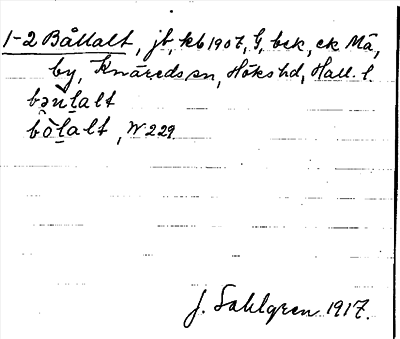 1-2 Bållalt, jb, kb 1907, G, bek, ek Må,
by, Knäreds sn, Höks hd, Hall. l.
bòlalt, W 229
J. Sahlgren 1917.